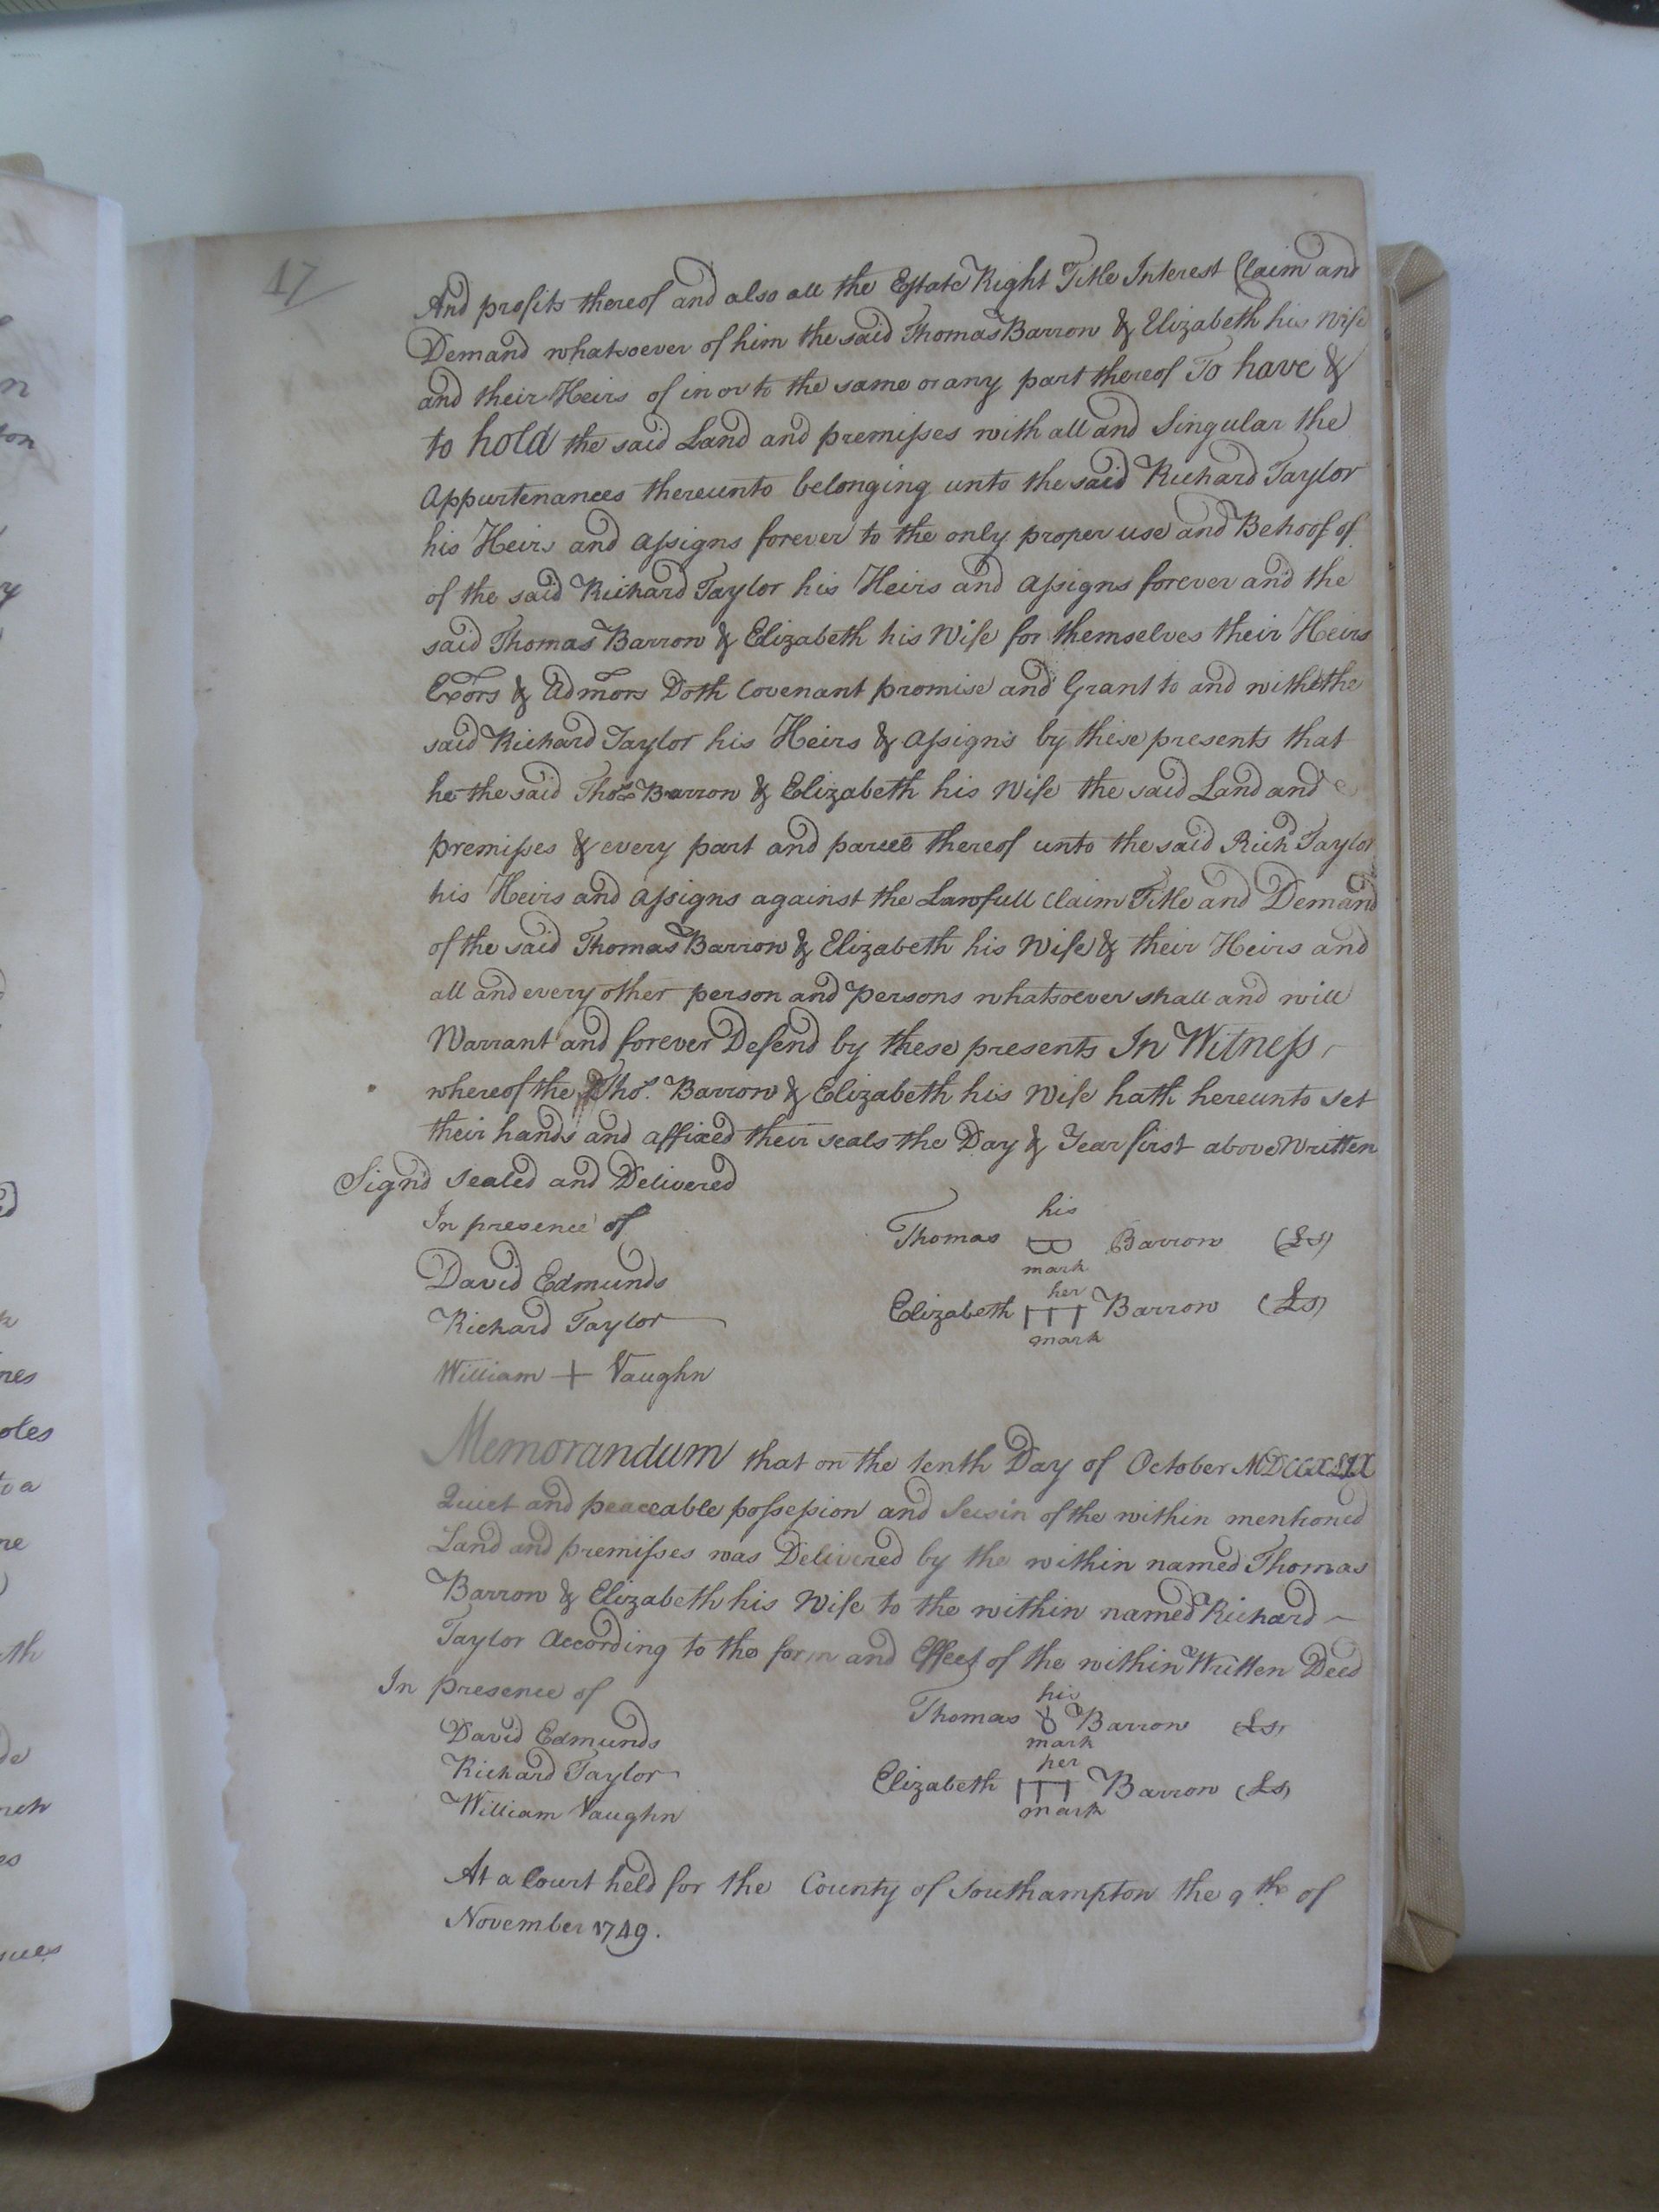 17
And profits thereof and also all the Estate Right Title Interest Claim and
Demand whatsoever of him the said Thomas Barrow & Elizabeth his Wife
and their Heirs of in or to the same or any part thereof To have &
to hold the said Land and premisses with all and Singular the
Appurtenances thereunto belonging unto the said Richard Taylor
his Heirs and assigns forever to the only proper use and Behoof of
of the said Richard Taylor his Heirs and assigns forever and the
said Thomas Barrow & Elizabeth his Wife for themselves their Heirs
Exors & Admors Doth Covenant promise and Grant to and with the
said Richard Taylor his Heirs & assigns by these presents that
he the said Thos Barrow & Elizabeth his Wife the said Land and
premisses & every part and parcel thereof unto the said Richd Taylor
his Heirs and assigns against the Lawfull Claim Title and Demand
of the said Thomas Barrow & Elizabeth his Wife & their Heirs and
all and every other person and Persons whatsoever shall and will
Warrant and forever Defend by these presents In Witness
whereof the Tho. Barrow & Elizabeth his Wife hath hereunto set
their hands and affixed their seals the Day & Year first above Written
Signd Sealed and Delivered
In presence of
David Edmunds
Richard Taylor
William + Vaughn
his
Thomas B Barrow (Ls)
mark
her
Elizabeth Barrow (Ls)
mark
Memorandum that on the tenth Day of October MDCCXLIX
Quiet and peaceable possession and Seisin of the within mentioned
Land and premisses was Delivered by the within named Thomas
Barrow & Elizabeth his Wife to the within named Richard
Taylor According to the form and Effect of the within Written Deed
In presence of
David Edmunds
Richard Taylor
William Vaughn
his
Thomas Barrow (Ls)
mark
her
Elizabeth Barrow (Ls)
mark
At a Court held for the County of Southampton the 9th of
November 1749.